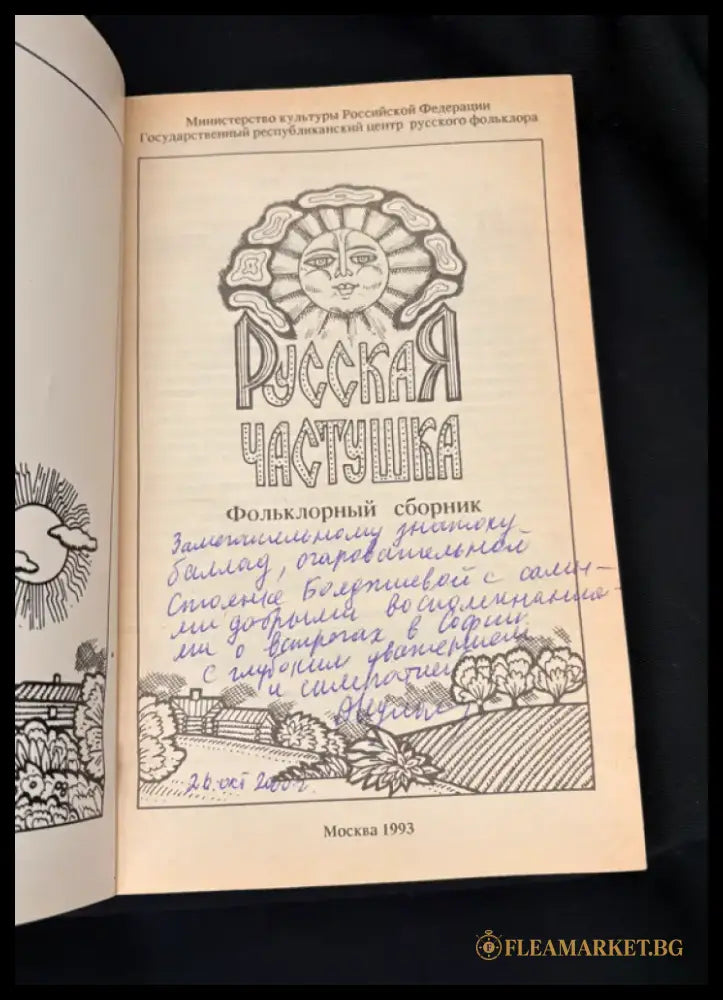 Министерство культуры Российской Федерации
Государственный республиканский центр русского фольклора
РУССКАЯ
ЧАСТУШКА
Фольклорный сборник
Замечательному знатоку
баллад, очаровательной
Стоянке Бояджиевой с самы-
ми добрыми воспоминания-
ми о встречах в Софии
с глубоким уважением
и симпатией
26 окт 2000 г
Москва 1993
FLEAMARKET.BG